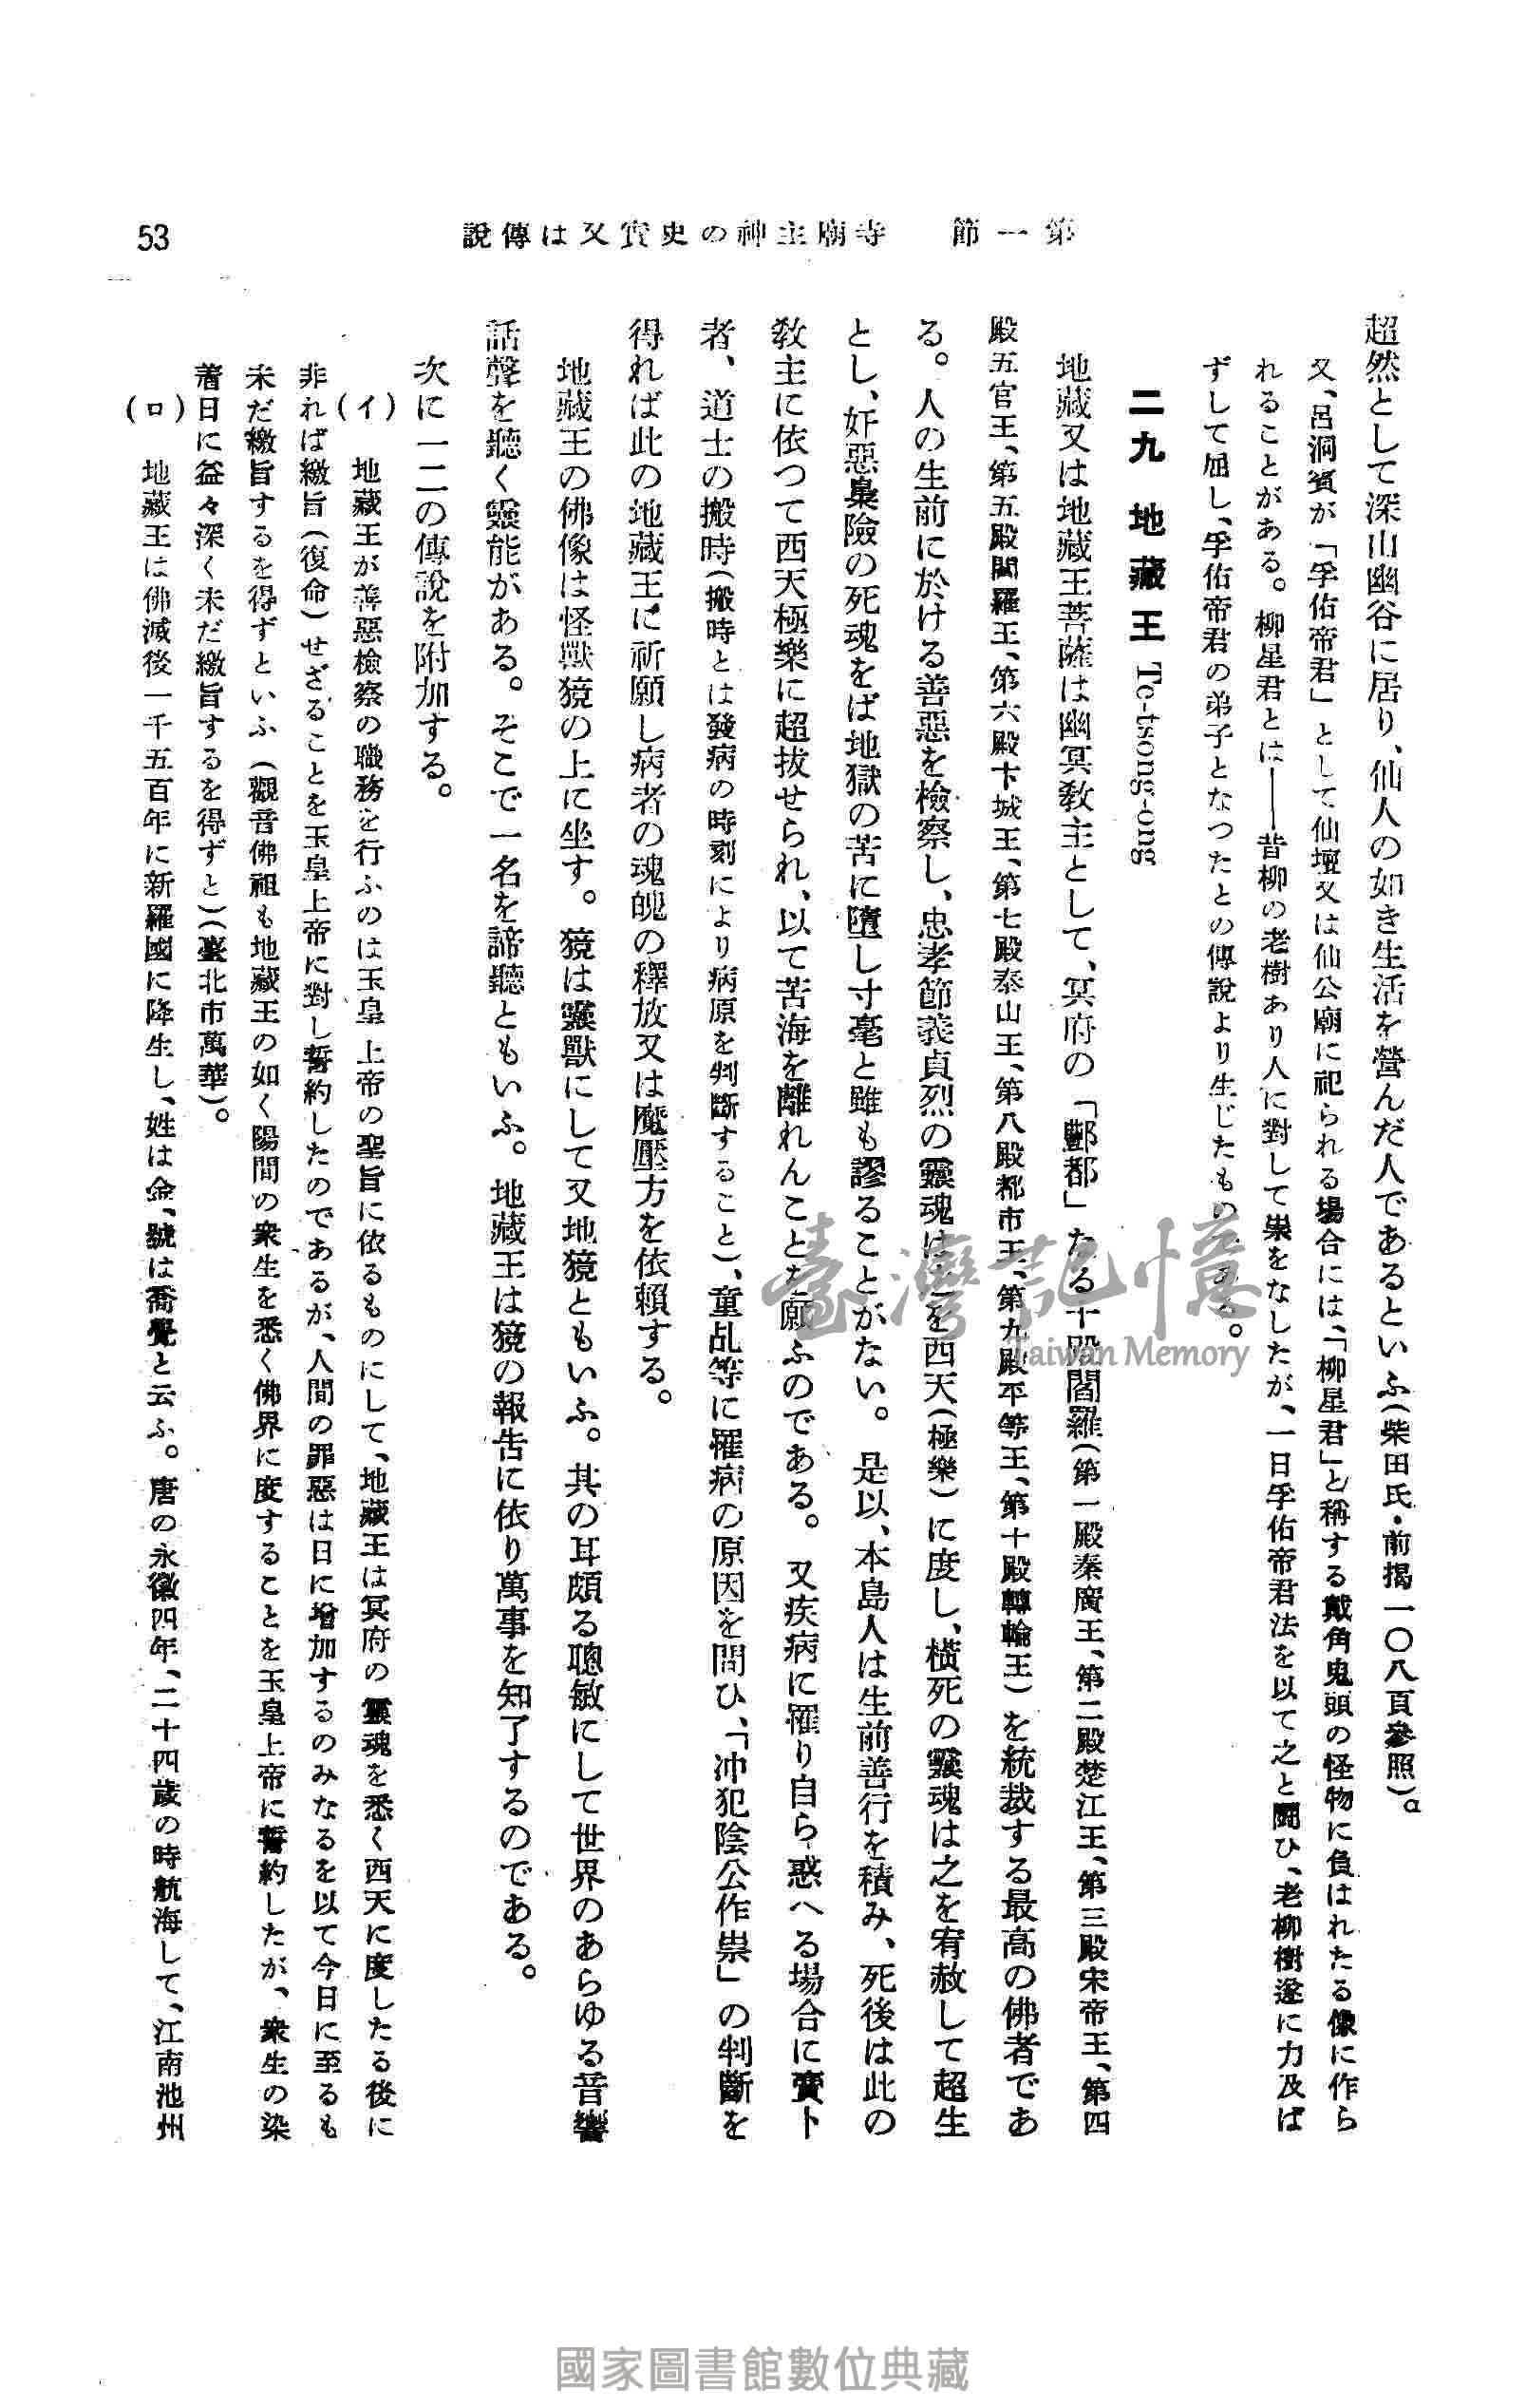 第一節　寺廟主神の史實又は傳說
53
超然として深山幽谷に居り、仙人の如き生活を營んだ人であるといふ(柴田氏・前揭一〇八頁參照)。
又、呂洞賓が「孚佑帝君」として仙壇又は仙公廟に祀られる場合には、「柳星君」と稱する戴角鬼頭の怪物に負はれたる像に作ら
れることがある。柳星君とは——昔柳の老樹あり人に對して祟をなしたが、一日孚佑帝君法を以て之と鬪ひ、老柳樹遂に力及ば
ずして屈し、孚佑帝君の弟子となつたとの傳說より生じたもの
二九　地藏王 Te-tsong-ong
地藏又は地藏王菩薩は幽冥敎主として、冥府の「酆都」なる十殿閻羅(第一殿秦廣王、第二殿楚江王、第三殿宋帝王、第四
殿五官王、第五殿閻羅王、第六殿卞城王、第七殿泰山王、第八殿都市王、第九殿平等王、第十殿轉輪王)を統裁する最高の佛者であ
る。人の生前に於ける善惡を檢察し、忠孝節義貞烈の靈魂は之を西天(極樂)に度し、橫死の靈魂は之を宥赦して超生
とし、奸惡梟險の死魂をば地獄の苦に墮し寸毫と雖も謬ることがない。是以、本島人は生前善行を積み、死後は此の
敎主に依つて西天極樂に超拔せられ、以て苦海を離れんことを願ふのである。又疾病に罹り自ら惑へる場合に賣卜
者、道士の搬時(搬時とは發病の時刻により病原を判斷すること)、童乩等に罹病の原因を問ひ、「冲犯陰公作祟」の判斷を
得れば此の地藏王に祈願し病者の魂魄の釋放又は魔壓方を依賴する。
地藏王の佛像は怪獸獍の上に坐す。獍は靈獸にして又地獍ともいふ。其の耳頗る聰敏にして世界のあらゆる音響
話聲を聽く靈能がある。そこで一名を諦聽ともいふ。地藏王は獍の報告に依り萬事を知了するのである。
次に一二の傳說を附加する。
(イ)　地藏王が善惡檢察の職務を行ふのは玉皇上帝の聖旨に依るものにして、地藏王は冥府の靈魂を悉く西天に度したる後に
非れば繳旨(復命)せざることを玉皇上帝に對し誓約したのであるが、人間の罪惡は日に增加するのみなるを以て今日に至るも
未だ繳旨するを得ずといふ(觀音佛祖も地藏王の如く陽間の衆生を悉く佛界に度することを玉皇上帝に誓約したが、衆生の染
著日に益々深く未だ繳旨するを得ずと)(臺北市萬華)。
(ロ)　地藏王は佛滅後一千五百年に新羅國に降生し、姓は金、號は喬覺と云ふ。唐の永徽四年、二十四歲の時航海して、江南池州
臺灣記憶
Taiwan Memory
國家圖書館數位典藏